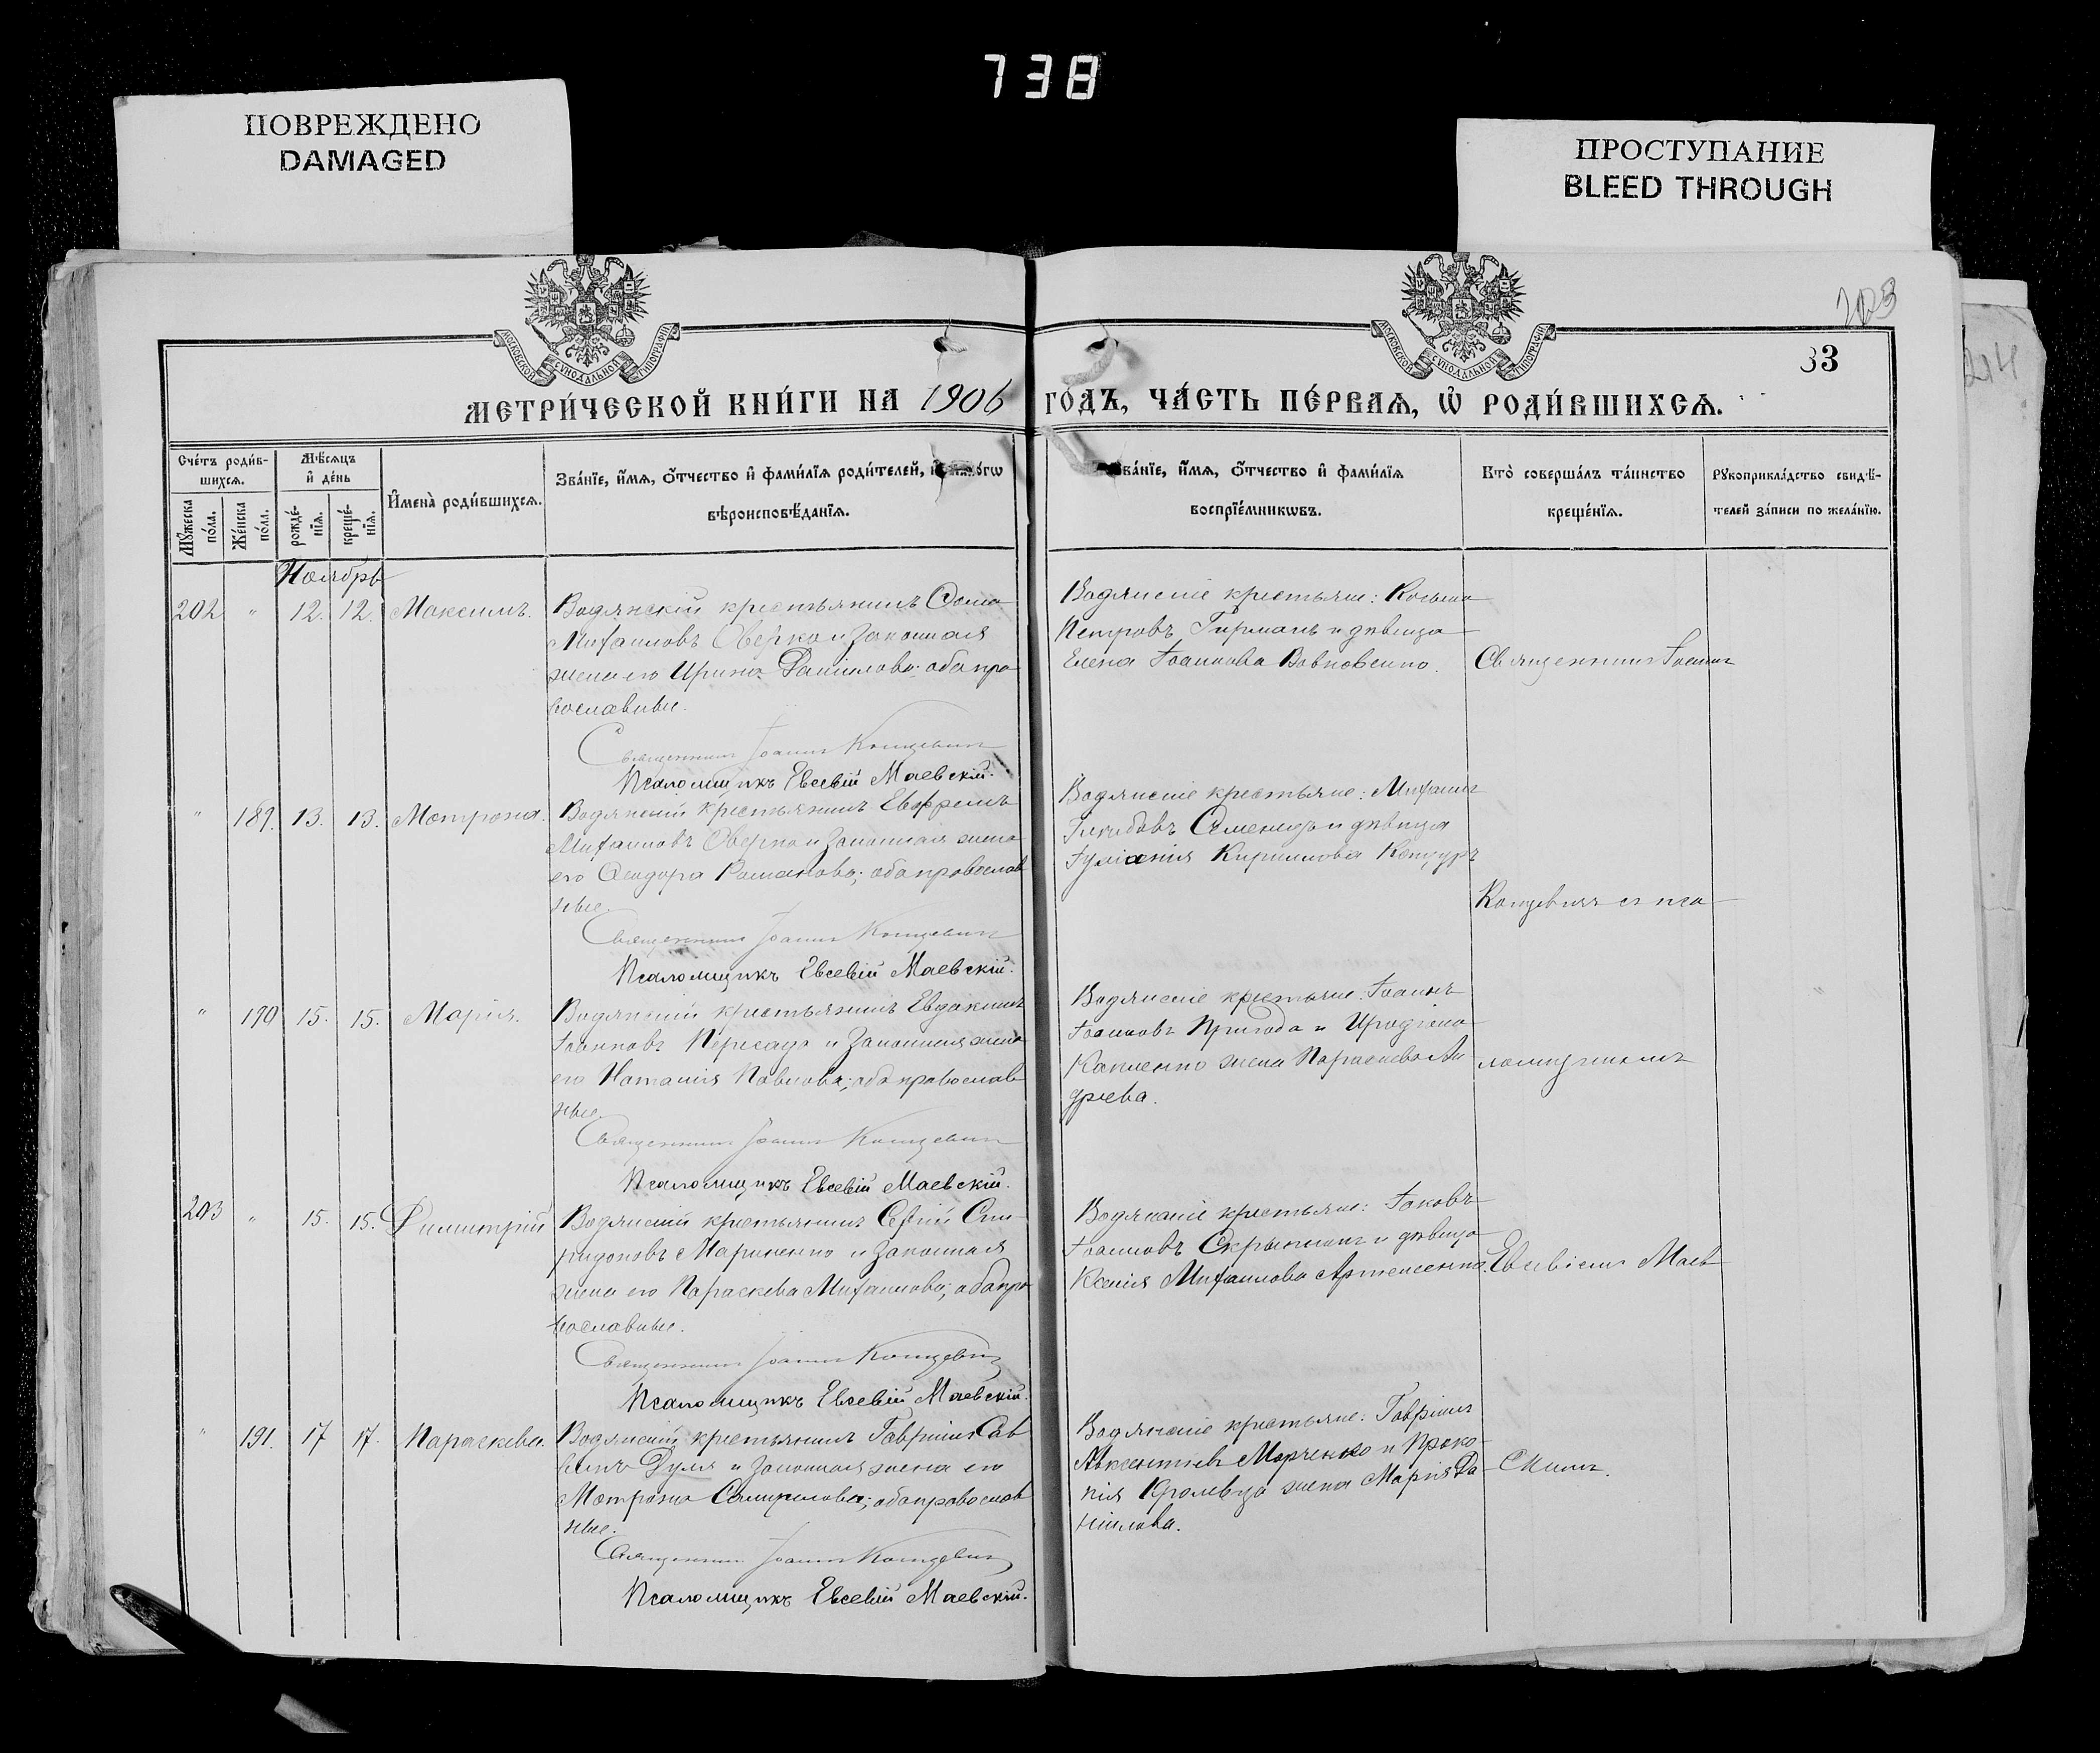 738
ПОВРЕЖДЕНО
DAMAGED
ПРОСТУПАНИЕ
BLEED THROUGH
МОСКОВСКОЙ СУНОДАЛЬНОЙ ТИПОГРАФІИ
МОСКОВСКОЙ СУНОДАЛЬНОЙ ТИПОГРАФІИ
33
МЕТРИ́ЧЕСКОЙ КНИ́ГИ НА 1906 ГО́ДЪ, ЧА́СТЬ ПЕ́РВАѦ, Ѽ РОДИ́ВШИХСѦ.
Сче́тъ роди́в-
шихсѧ.
Мѣ́сѧцъ
и҆ де́нь
Мꙋ́жеска по́ла.
Же́нска по́ла.
рожде́-
нїѧ.
креще́-
нїѧ.
И҆мена̀ роди́вшихсѧ.
Зва́нїе, и҆́мѧ, ѻ҆́тчество и҆ фами́лїѧ роди́телей,
вѣроисповѣ́данїѧ.
Зва́нїе, и҆́мѧ, ѻ҆́тчество и҆ фами́лїѧ
воспрїе́мникѡвъ.
Кто̀ соверша́лъ та́инство
креще́нїѧ.
Рꙋкоприкла́дство свидѣ́-
телей за́писи по жела́нїю.
Ноябрь
202 " 12. 12. Максимъ.
Водянскій крестьянинъ Ѳома
Михаиловъ Оверко и законная
жена его Ирина Даніилова; оба пра
вославные.
Священникъ Іоаннъ Концевичъ
Псаломщикъ Евсевій Маевскій.
Водянскіе крестьяне: Косьма
Петровъ Гирманъ и дѣвица
Елена Іоаннова Вовковенко.
Священникъ Іоаннъ
" 189. 13. 13. Матрона.
Водянскій крестьянинъ Евфремъ
Михаиловъ Оверко и законная жена
его Ѳеодора Романова; оба православ
ные.
Священникъ Іоаннъ Концевичъ
Псаломщикъ Евсевій Маевскій.
Водянскіе крестьяне: Михаилъ
и дѣвица
Іуліанія Кириллова
Концевичъ съ пса
" 190 15. 15. Марія.
Водянскій крестьянинъ Евдокимъ
Іоанновъ Пересада и законная жена
его Наталія Павлова; оба православ
ные.
Священникъ Іоаннъ Концевичъ
Псаломщикъ Евсевій Маевскій.
Водянскіе крестьяне: Іоаннъ
Іоанновъ Пригода и Иродіона
жена Параскева Ан
дреева.
ломщикомъ
203 " 15. 15. Димитрій
Водянскій крестьянинъ Сергій Спи
ридоновъ Мариненко и законная
жена его Параскева Михаилова; оба пра
вославные.
Священникъ Іоаннъ Концевичъ
Псаломщикъ Евсевій Маевскій.
Водянскіе крестьяне: Іаковъ
Іоанновъ Скрынникъ и дѣвица
Ксенія Михаилова Артеменко.
Евсевіемъ Маев
" 191. 17 17. Параскева.
Водянскій крестьянинъ Гавріилъ Сав
винъ Дуля и законная жена его
Матрона Самуилова; оба православ
ные.
Священникъ Іоаннъ Концевичъ
Псаломщикъ Евсевій Маевскій.
Водянскіе крестьяне: Гавріилъ
Авксентіевъ Марченко и Проко
пія Кролевца жена Марія Да
ніилова.
скимъ.